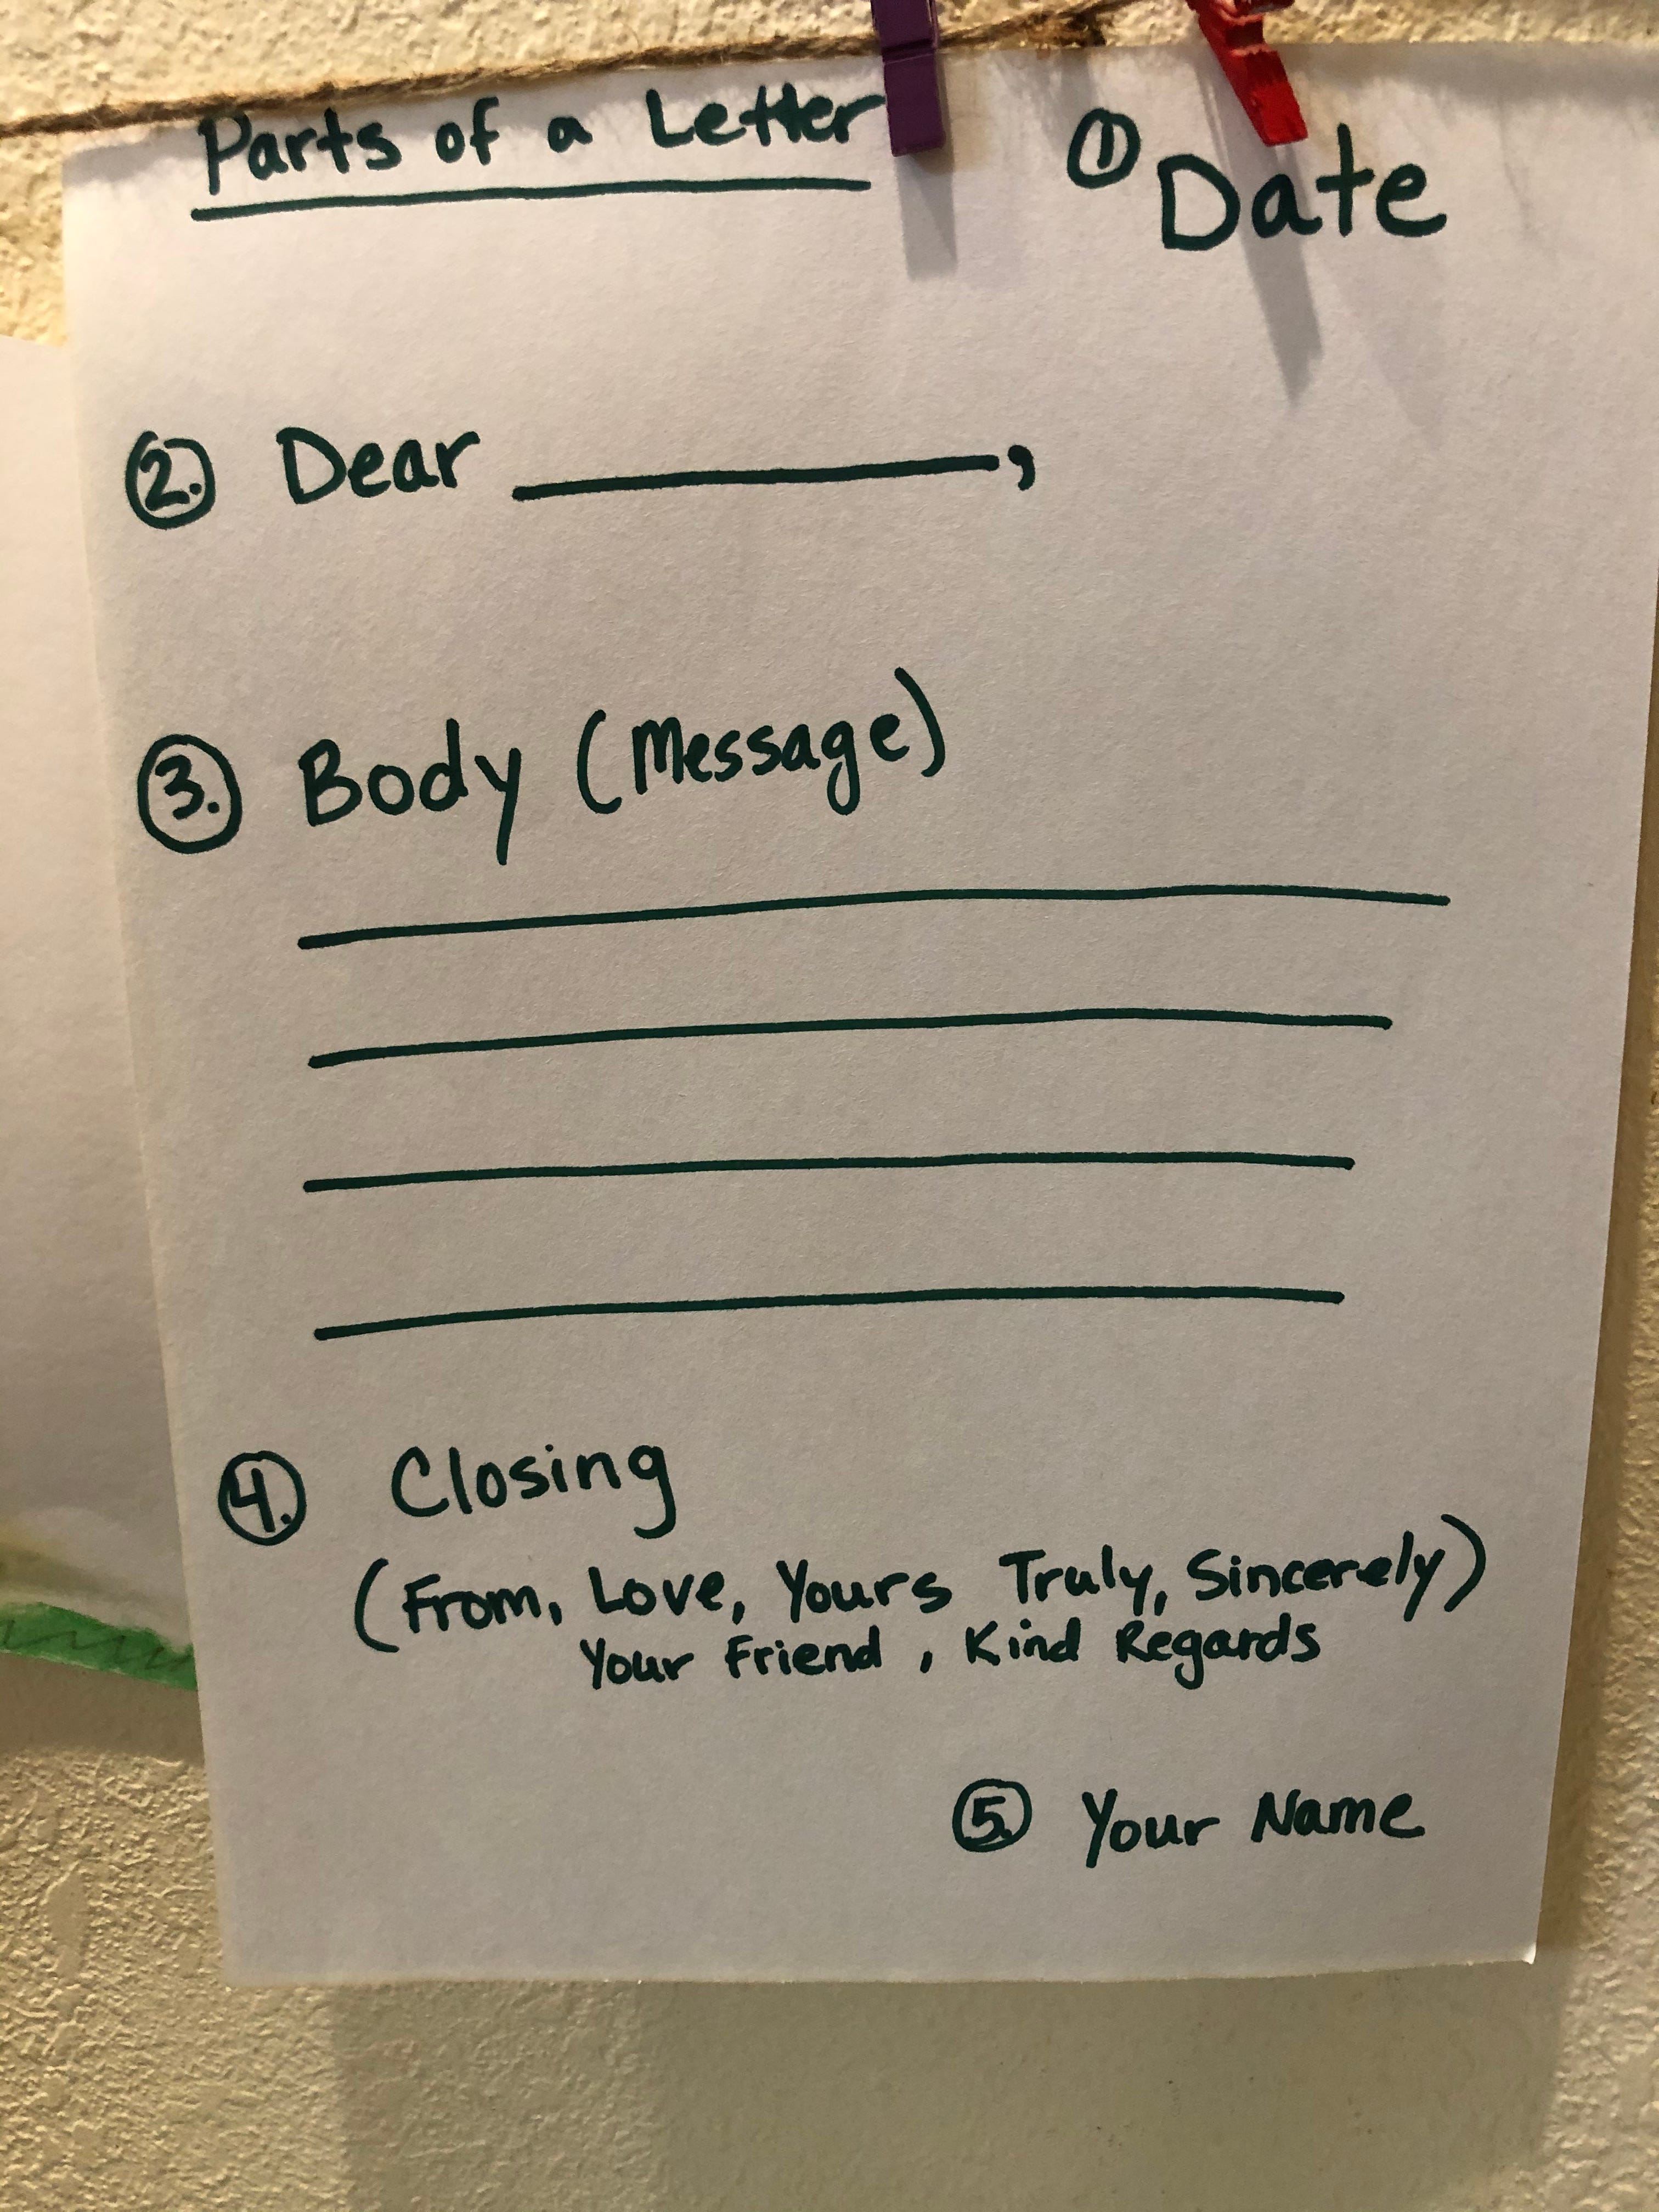 Parts of a Letter
① Date
②. Dear __________,
③. Body (Message)
④. Closing
(From, Love, Yours Truly, Sincerely)
Your Friend, Kind Regards
⑤. Your Name